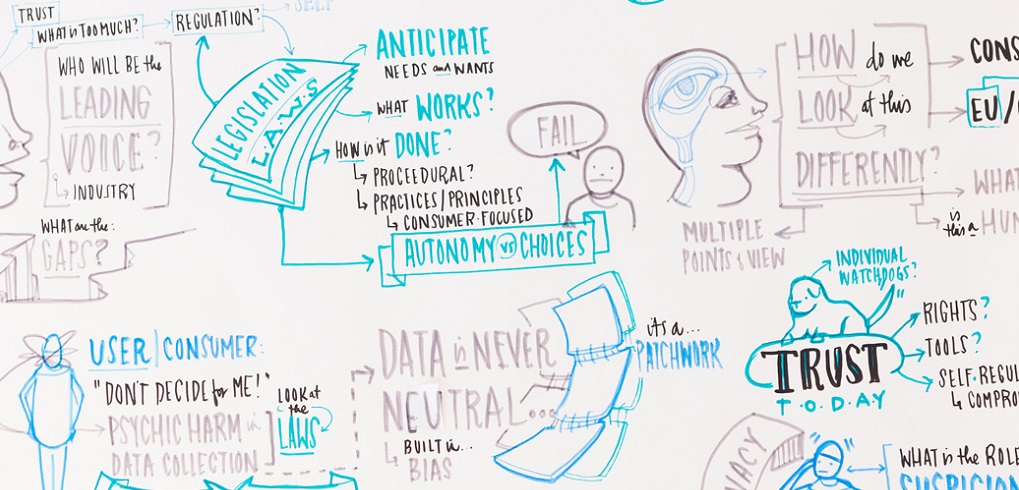 TRUST
WHAT is TOO MUCH?
REGULATION?
SELF
WHO WILL BE the
LEADING
VOICE?
INDUSTRY
WHAT are the:
GAPS?
LEGISLATION
L.A.W.S
ANTICIPATE
NEEDS and WANTS
WHAT WORKS?
HOW is it DONE?
PROCEEDURAL?
PRACTICES/PRINCIPLES
CONSUMER-FOCUSED
AUTONOMY VS CHOICES
FAIL
HOW do we
LOOK at this
DIFFERENTLY?
CONS
EU/
WHAT
is this a HUM
MULTIPLE
POINTS of VIEW
INDIVIDUAL
WATCHDOGS?
TRUST
T.O.D.A.Y
RIGHTS?
TOOLS?
SELF-REGUL
COMPRO
USER/CONSUMER:
"DON'T DECIDE for ME!"
PSYCHIC HARM in
DATA COLLECTION
LOOK at
the
LAWS
DATA is NEVER
NEUTRAL...
BUILT in...
BIAS
it's a...
PATCHWORK
VACY
WHAT is the ROLE
SUSPICION